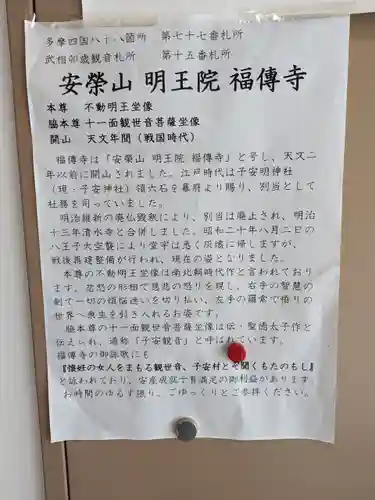 多摩四国八十八箇所　第七十七番札所
武相卯歳観音札所　第十五番札所
安榮山 明王院 福傳寺
本尊　不動明王坐像
脇本尊 十一面観世音菩薩坐像
開山　天文年間（戦国時代）
福傳寺は「安榮山 明王院 福傳寺」と号し、天文二
年以前に開山されました。江戸時代は子安明神社
（現・子安神社）領六石を幕府より賜り、別当として
社務を司っていました。
明治維新の廃仏毀釈により、別当は廃止され、明治
十三年清水寺と合併しました。昭和二十年八月二日の
八王子大空襲により堂宇は悉く灰燼に帰しますが、
戦後再建整備が行われ、現在の姿となりました。
本尊の不動明王坐像は南北朝時代作と言われており
ます。忿怒の形相で慈悲の怒りを現し、右手の智慧の
剣で一切の煩悩迷いを切り払い、左手の羂索で悟りの
世界へ衆生を引き入れるお姿です。
脇本尊の十一面観世音菩薩坐像は伝・聖徳太子作と
伝えられ、通称「子安観音」と呼ばれています。
福傳寺の御詠歌にも
『懐妊の女人をまもる観世音、子安村とぞ聞くもたのもし』
と詠われており、安産成就子育満足の御利益があります
お時間のゆるす限り、ごゆっくりとご参拝ください。